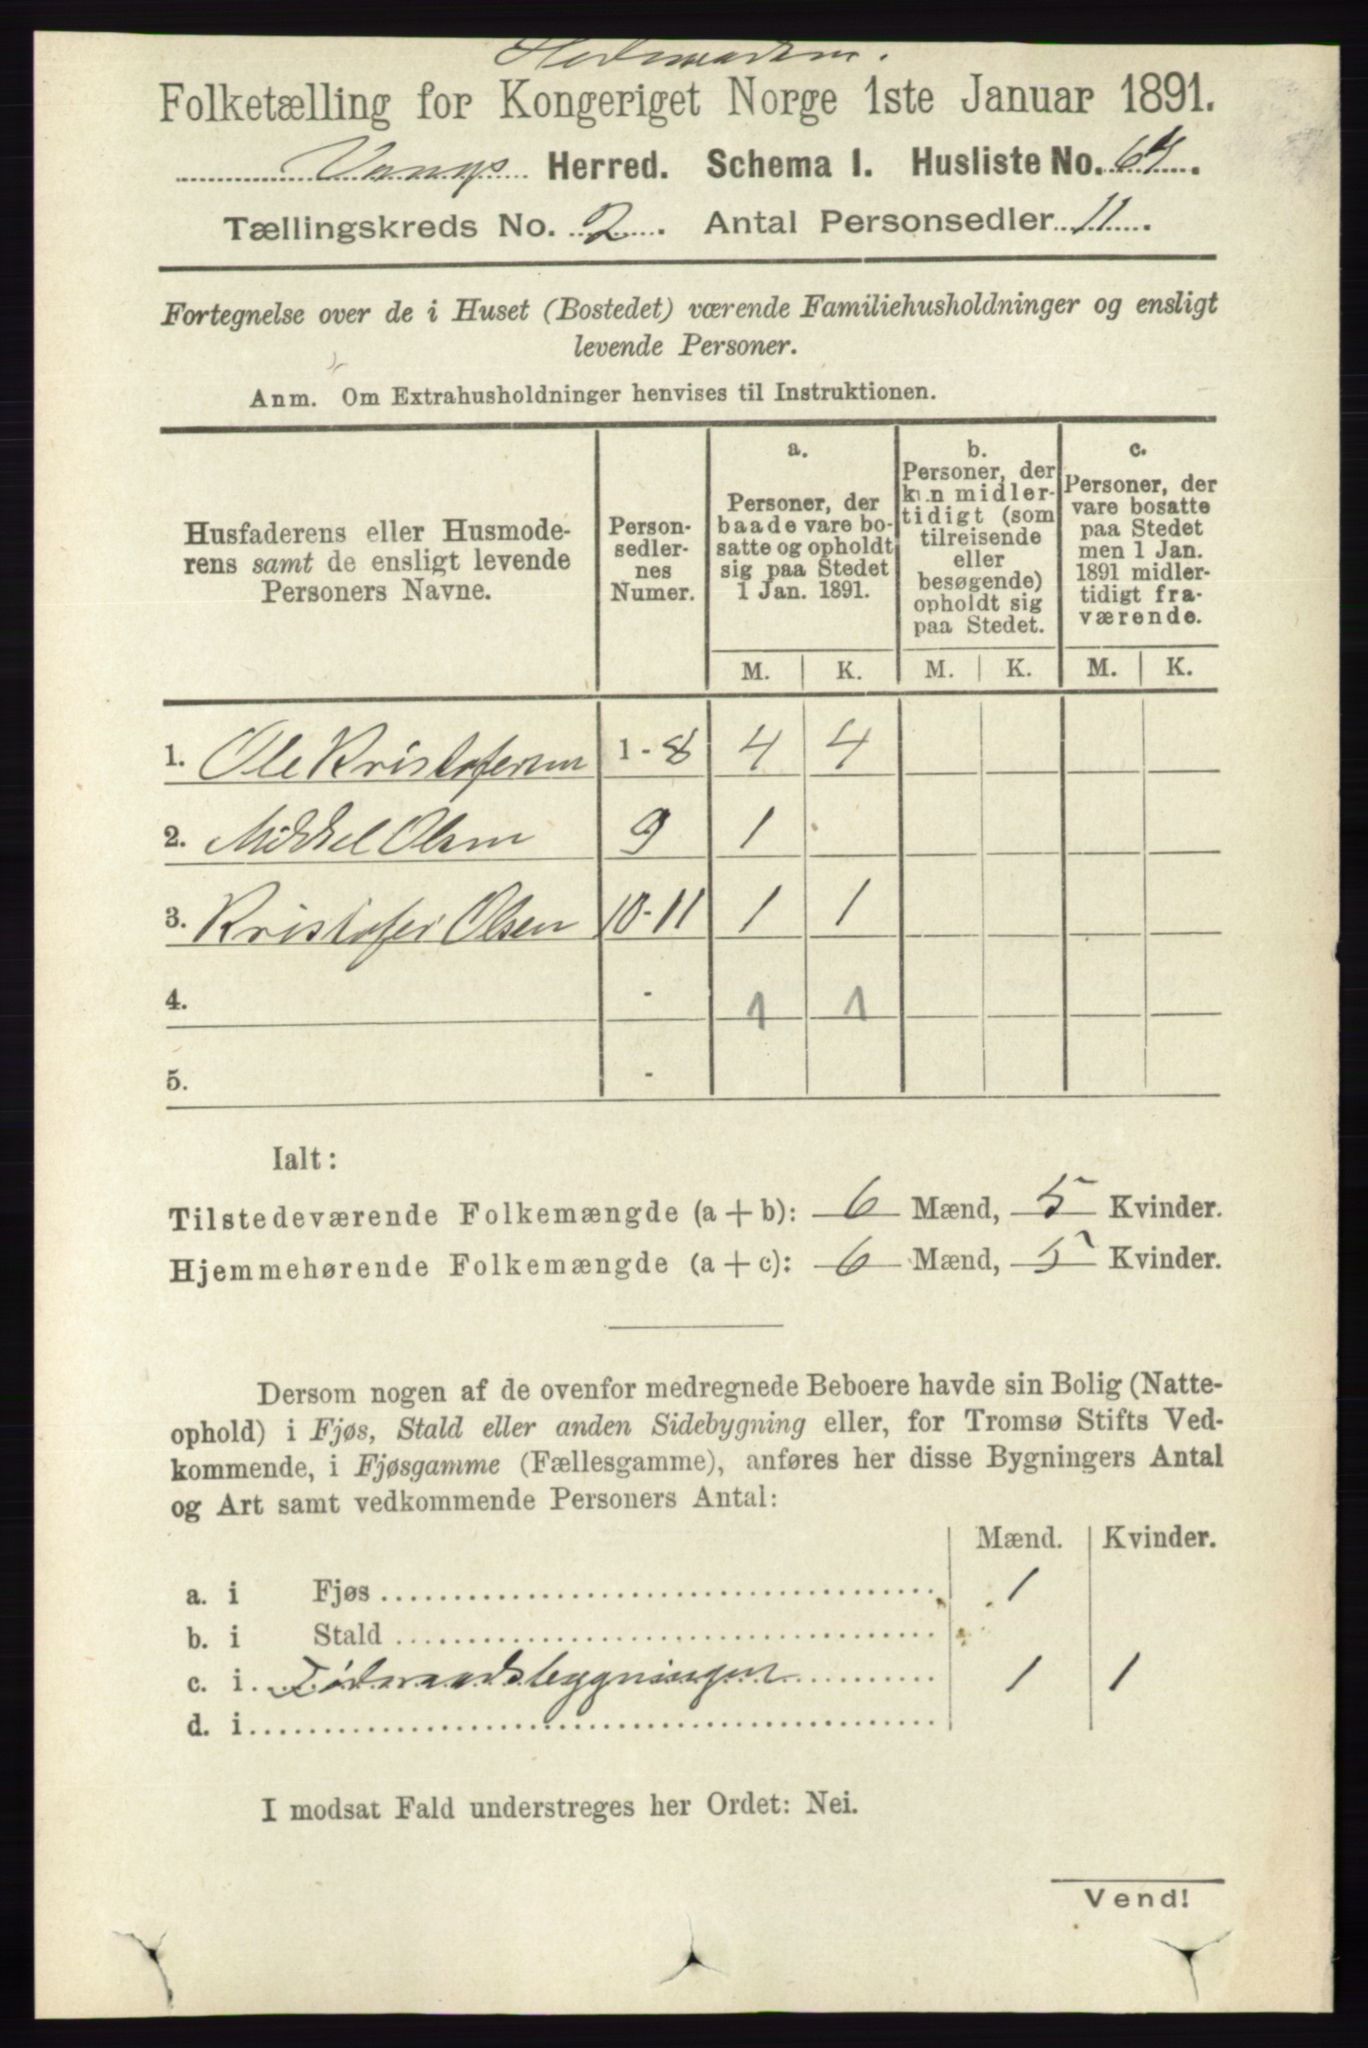 Hedemarken.
Folketælling for Kongeriget Norge 1ste Januar 1891.
Vangs Herred. Schema 1. Husliste No. 64.
Tællingskreds No. 2. Antal Personsedler 11.
Fortegnelse over de i Huset (Bostedet) værende Familiehusholdninger og ensligt
levende Personer.
Anm. Om Extrahusholdninger henvises til Instruktionen.
Husfaderens eller Husmode-
rens samt de ensligt levende
Personers Navne.
Person-
sedler-
nes
Numer.
a.
Personer, der
baade vare bo-
satte og opholdt
sig paa Stedet
1 Jan. 1891.
b.
Personer, der
kun midler-
tidigt (som
tilreisende
eller
besøgende)
opholdt sig
paa Stedet.
c.
Personer, der
vare bosatte
paa Stedet
men 1 Jan.
1891 midler-
tidigt fra-
værende.
M. K. M. K. M. K.
1. Ole Kristofersen 1-8 4 4
2. Mikkel Olsen 9 1
3. Kristofer Olsen 10-11 1 1
4. - 1 1
5. -
Ialt:
Tilstedeværende Folkemængde (a + b): 6 Mænd, 5 Kvinder.
Hjemmehørende Folkemængde (a + c): 6 Mænd, 5 Kvinder.
Dersom nogen af de ovenfor medregnede Beboere havde sin Bolig (Natte-
ophold) i Fjøs, Stald eller anden Sidebygning eller, for Tromsø Stifts Ved-
kommende, i Fjøsgamme (Fællesgamme), anføres her disse Bygningers Antal
og Art samt vedkommende Personers Antal:
Mænd. Kvinder.
a. i Fjøs 1
b. i Stald
c. i 1 1
d. i
I modsat Fald understreges her Ordet: Nei.
Vend!